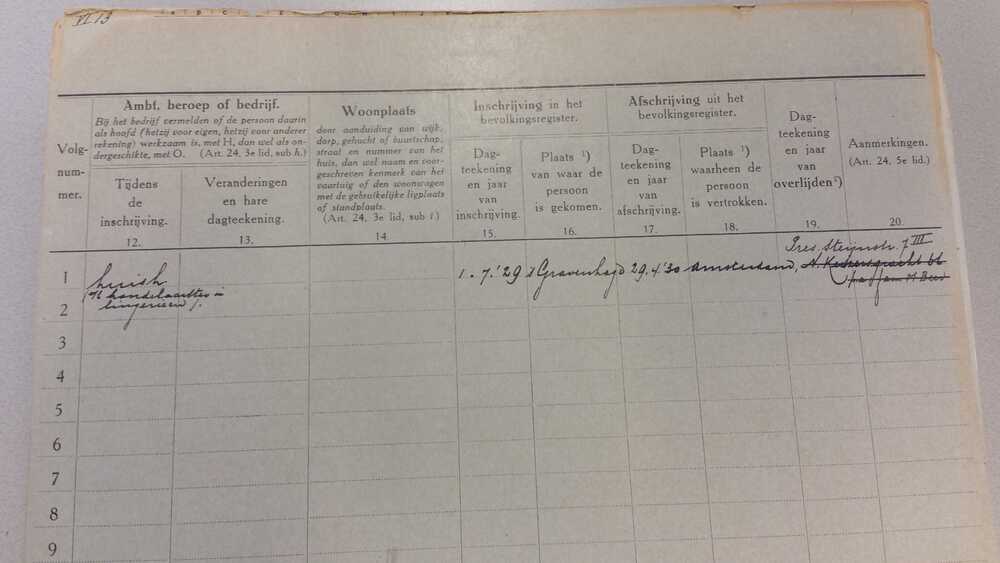 VI 13
Volg-
num-
mer.
Ambt, beroep of bedrijf.
Bij het bedrijf vermelden of de persoon daarin
als hoofd (hetzij voor eigen, hetzij voor anderer
rekening) werkzaam is, met H, dan wel als on-
dergeschikte, met O. (Art. 24, 3e lid, sub h.)
Tijdens
de
inschrijving.
12.
Veranderingen
en hare
dagteekening.
13.
Woonplaats
door aanduiding van wijk,
dorp, gehucht of buurtschap,
straat en nummer van het
huis, dan wel naam en voor-
geschreven kenmerk van het
vaartuig of den woonwagen
met de gebruikelijke ligplaats
of standplaats.
(Art. 24, 3e lid, sub i.)
14
Inschrijving in het
bevolkingsregister.
Dag-
teekening
en jaar
van
inschrijving.
15.
Plaats 1)
van waar de
persoon
is gekomen.
16.
Afschrijving uit het
bevolkingsregister.
Dag-
teekening
en jaar
van
afschrijving.
17.
Plaats 1)
waarheen de
persoon
is vertrokken.
18.
Dag-
teekening
en jaar
van
overlijden 2)
19.
Aanmerkingen.
(Art. 24, 5e lid.)
20.
Pres. Steijnstr. 7 III
1 1. 7.'29 's Gravenhage 29.4.'30 Amsterdam,
handelaarster in
2 lingerieen
3
4
5
6
7
8
9